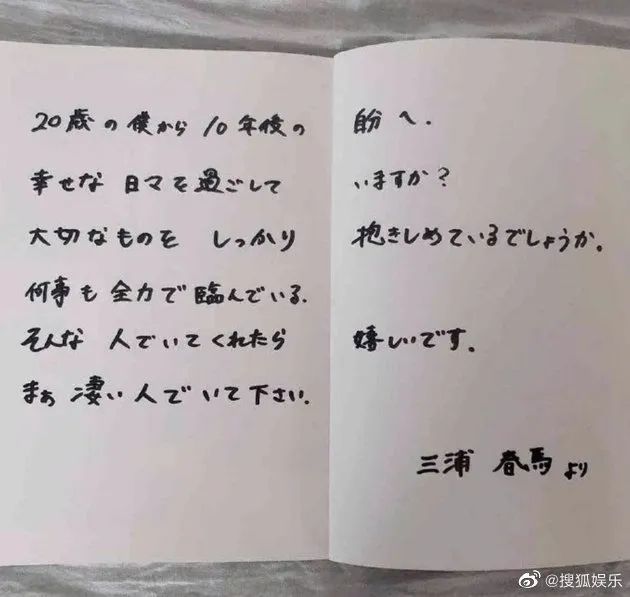 20歳の僕から10年後の自分へ.
幸せな日々を過ごしていますか?
大切なものをしっかり抱きしめているでしょうか。
何事も全力で臨んでいる.
そんな人でいてくれたら嬉しいです。
まぁ凄い人でいて下さい.
三浦 春馬より
@搜狐娱乐